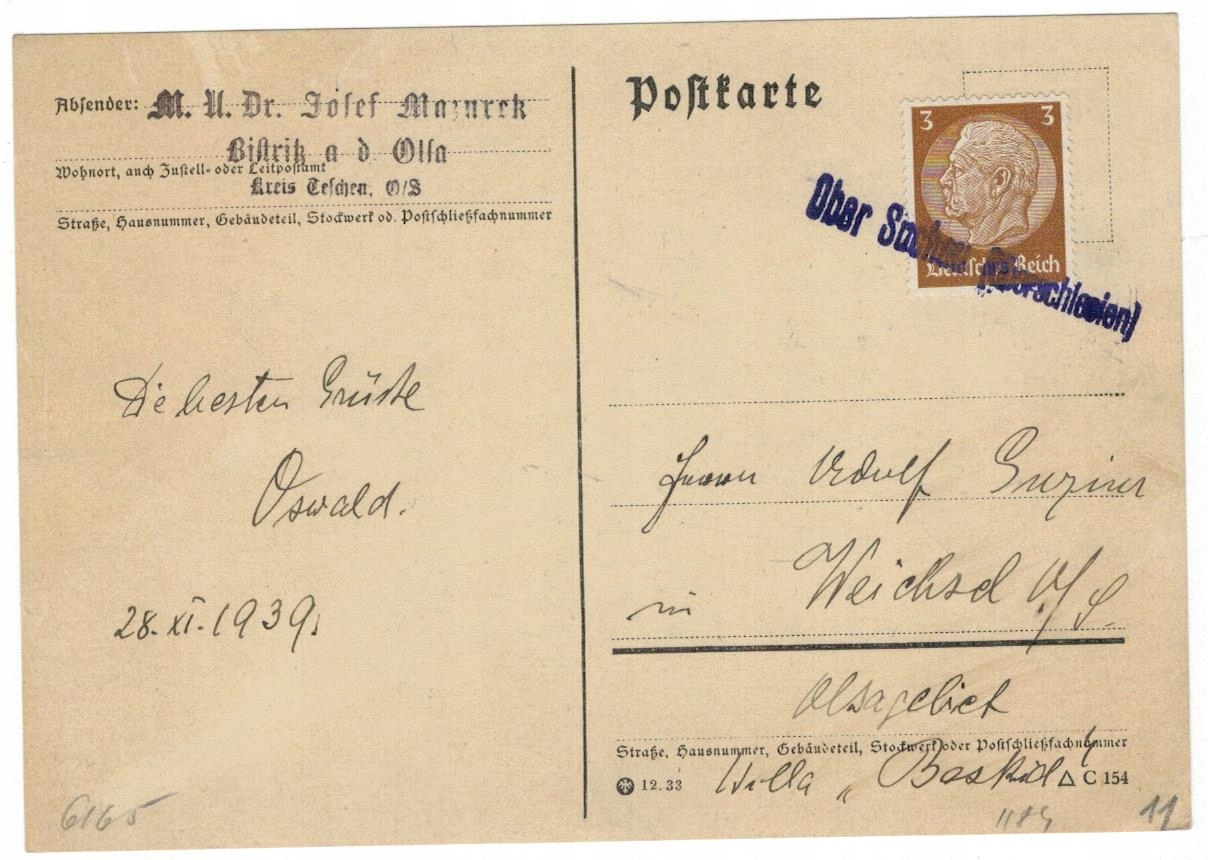 Absender: M. U. Dr. Josef Mazurek
Bistritz a d Olsa
Wohnort, auch Zustell- oder Leitpostamt
Kreis Teschen, O/S
Straße, Hausnummer, Gebäudeteil, Stockwerk od. Postschließfachnummer
Die besten Grüsse
Oswald.
28. XI. 1939.
6165
Postkarte
3 3
Deutsches Reich
Ober (Oberschlesien)
Herrn Adolf
in Weichsel O/S.
Olsagebiet
Straße, Hausnummer, Gebäudeteil, Stockwerk oder Postschließfachnummer
12. 33 Willa „Beskid" C 154
11